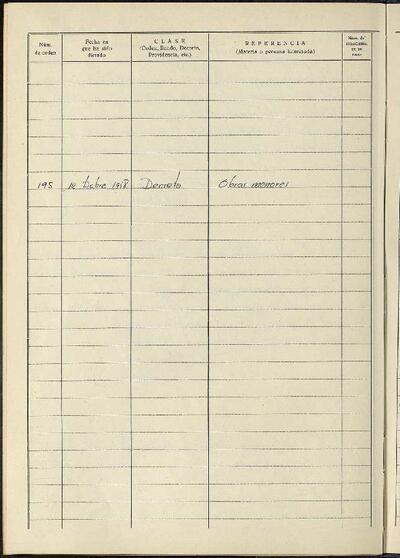 Núm.
de orden
Fecha en
que ha sido
dictado
CLASE
(Orden, Bando, Decreto,
Providencia, etc.)
REFERENCIA
(Materia o persona interesada)
Núm. de
195 1978 Decreto Obras menores